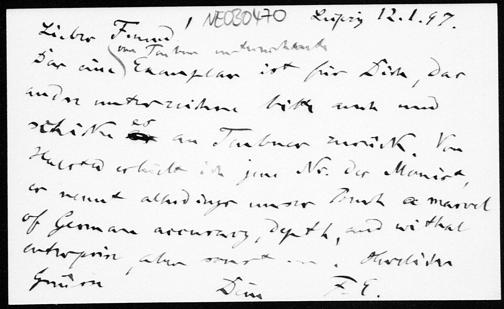 Lieber Freund! NE030470 Leipzig 12.1.97.
von Teubner unterzeichnete
Das eine Exemplar ist für Dich, das
andre unterzeichne bitte auch und
schicke es an Teubner zurück. Von
Halsted erhielt ich jene No. des Monist,
er nennt allerdings unser Buch a marvel
of German accuracy, depth, and withal
enterprise, aber sonst
Grüssen Dein F.E.